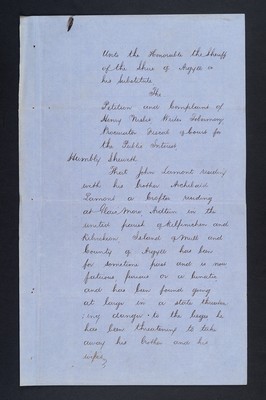 Unto the Honorable the Sheriff
of the Shire of Argyll or
his Substitute
The
Petition and Complaint of
Henry Nisbet, Writer Tobermory
Procurator Fiscal of Court for
the Public Interest
Humbly Sheweth
That John Lamont residing
with his brother Archibald
Lamont a Crofter residing
at Ardtun in the
united parish of Kilfinichen and
Kilvickeon Island of Mull and
County of Argyll has been
for sometime past and is now
furious or a lunatic
and has been found going
at large in a state threaten
:ing danger to the lieges he
has been threatening to take
away his brother and his
wifes